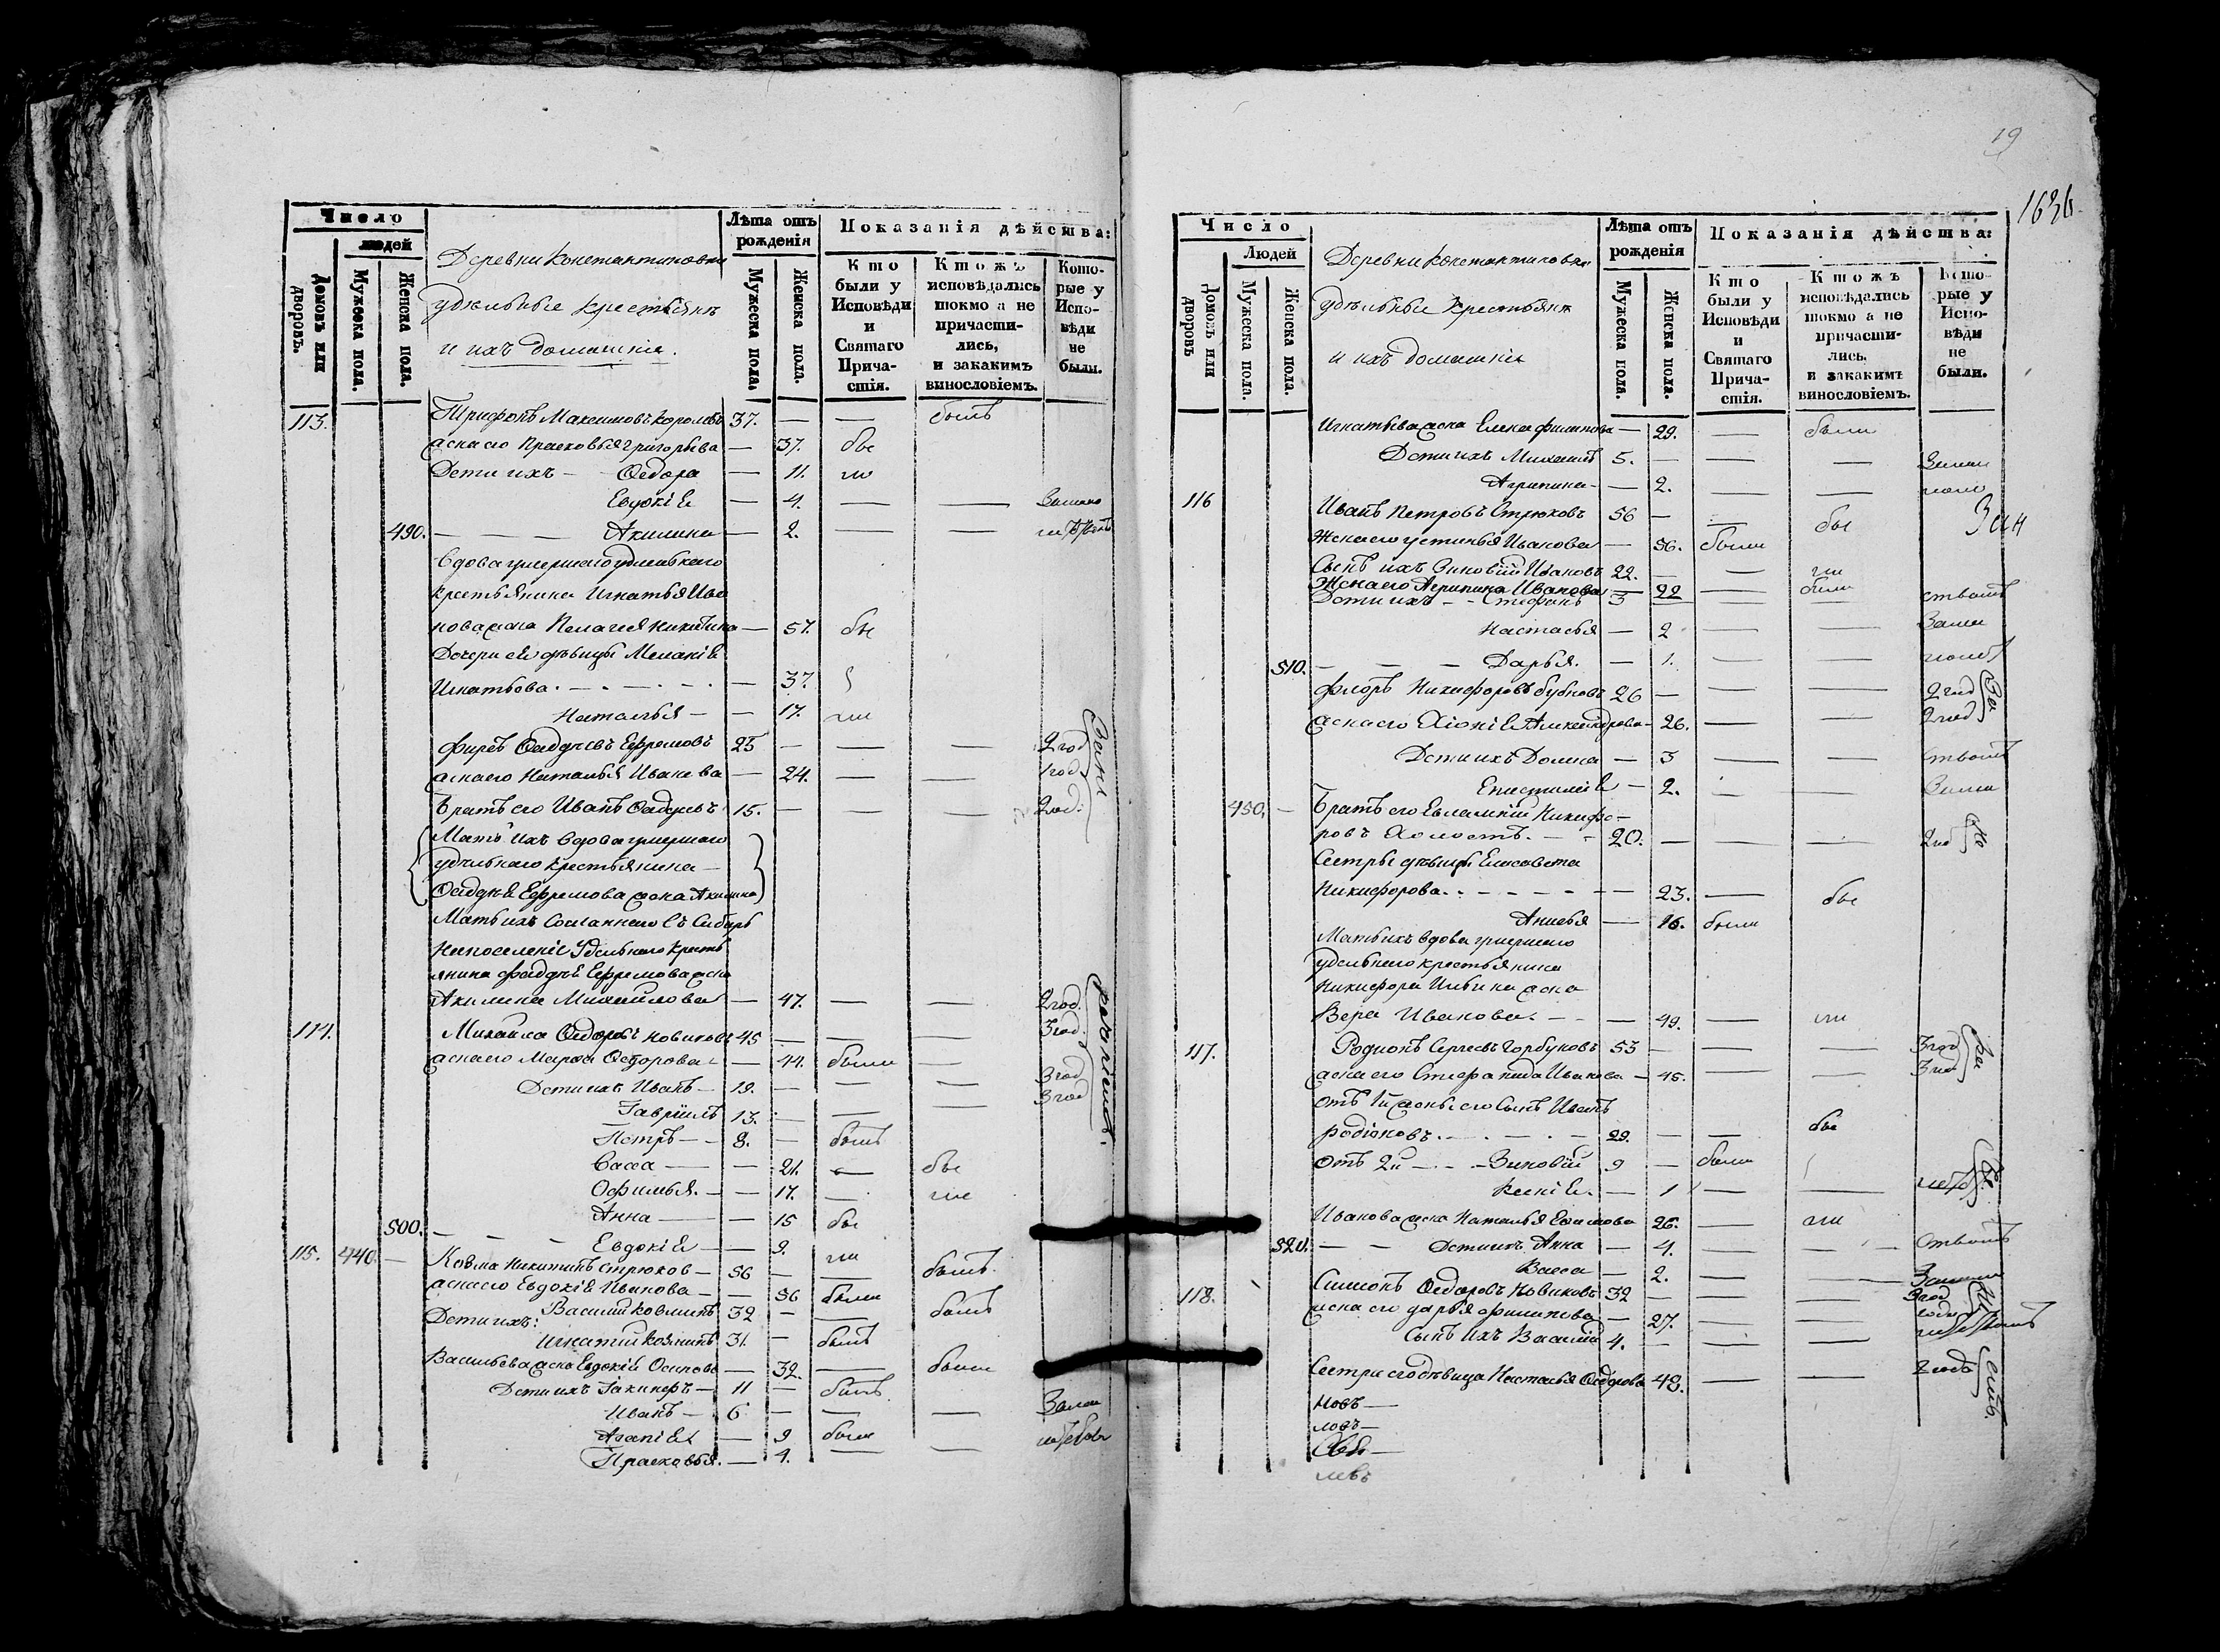 Число
людей
Домовъ или дворовъ.
Мужеска пола.
Женска пола.
Деревни Константиновки
удѣльные крестьянѣ
и ихъ домашніе.
Лѣта отъ рожденія
Мужеска пола.
Женска пола.
Показанія дѣйства:
Кто были у Исповѣди и Святаго Причастія.
Ктожъ исповѣдались токмо а не причастились, и закакимъ винословіемъ.
Которые у Исповѣди не были.
113. Трифонъ Максимовъ 37. — — былъ
жена его Прасковья Григорьева — 37. бы
Дети ихъ — Ѳедора — 11. ли
Евдокія — 4. — — Замало
490. — — — Акилина — 2. — —
Вдова умершаго удельнаго
крестьянина Игнатья Ива
нова жена Пелагея Никитина — 57. бы
Дочери ея дѣвицы Меланія
Игнатьева. — 37.
Наталья — — 17. ли
Фирсъ Ѳадѣевъ Ефремовъ 25 — — — 2 год
жена его Наталья Иванова — 24. — — 1 год
Братъ его Иванъ Ѳадѣевъ 15. — — — 2 год.
Мать ихъ вдова умершаго
удѣльнаго крестьянина
Ѳадѣя Ефремова жена Акилина
Мать ихъ Сосланнаго въ Сибирь
на поселеніе Удельнаго кресть
янина Фадѣя Ефремова жена
Акилина Михайлова — 47. — — 2 год.
114. Михайла Ѳедоровъ Новиковъ 45 — — — 3 год.
жена его Марѳа Ѳедорова — 44. были —
Дети ихъ Иванъ — 19. — — — 3 год
Гавріилъ 13. — — — 3 год
Петръ — 8. — былъ
Васса — — 21. — бы
Офимья. — — 17. — ли
Анна — — 15 бы
500. — — — Евдокія — — 9. ли
115. 440. — Козма Никитинъ Стрюков — 56 — — былъ
жена его Евдокія Иванова — — 56 были
Дети ихъ: Василій Козминъ 32 — — былъ
Игнатій Козминъ 31. — былъ
Васильева жена Евдокія Осипова — 32. — были
Дети ихъ Іакинфъ — 11 — былъ
Иванъ — 6 — — — Замал
Агапія — 9 были
Прасковья. — 4. — —
Замал
рачѣніемъ.
19
1636
Число
Людей
Домовъ или дворовъ
Мужеска пола.
Женска пола.
Деревни Константиновки
удѣльные крестьянѣ
и ихъ домашніе
Лѣта отъ рожденія
Мужеска пола.
Женска пола.
Показанія дѣйства:
Кто были у Исповѣди и Святаго Причастія.
Ктожъ исповѣдались токмо а не причастились. и закакимъ винословіемъ.
Которые у Исповѣди не были.
Игнатьева жена Елена Филипова — 29. — были
Дети ихъ Михаилъ 5. — — —
Агрипина — — 2. — —
116 Иванъ Петровъ Стрюковъ 56 — — бы
Жена его Устинья Иванова — 56. были
Сынъ ихъ Зиновій Ивановъ 22. — — ли
Жена его Агрипина Иванова — 22 — были
Дети ихъ — Стефанъ 3
Настасья — 2 — —
510. — — — Дарья. — 1. — —
Флоръ Никифоровъ Бубновъ 26 — — — 2 год
жена его Хіонія Александрова — 26. — — 2 год
Дети ихъ Домна — 3 — —
Епистимія — 2. — —
450. — Братъ его Евлампій Никифо—
ровъ Холостъ. — — 20. — — — 2 год
Сестры дѣвицы Елисавета
Никифорова. — 23. — бы
Анисья — 16. были
Мать ихъ вдова умершаго
удельнаго крестьянина
Никифора Ильина жена
Вера Иванова. — — 49. — ли
117. Родионъ Сергеевъ Горбуновъ 53 — — — 3 год
жена его Стефанида Иванова — 45. — — 3 год
отъ 1й жены его Сынъ Иванъ
Родіоновъ. — 29. — — бы
отъ 2й — — Зиновій 9 — были
Ксенія. — 1 — —
Иванова жена Наталья Ефимова 26. — ли
520. — — Дети ихъ Анна — 4. — —
Васса — 2. — —
118. Симіонъ Ѳедоровъ Новиковъ 32 — — — 3 год
жена его Дарья Филипова — 27. — —
Сынъ ихъ Василій 4. — — —
Сестра его дѣвица Настасья Ѳедорова 48. — — 2 года
новъ —
ловъ —
левъ